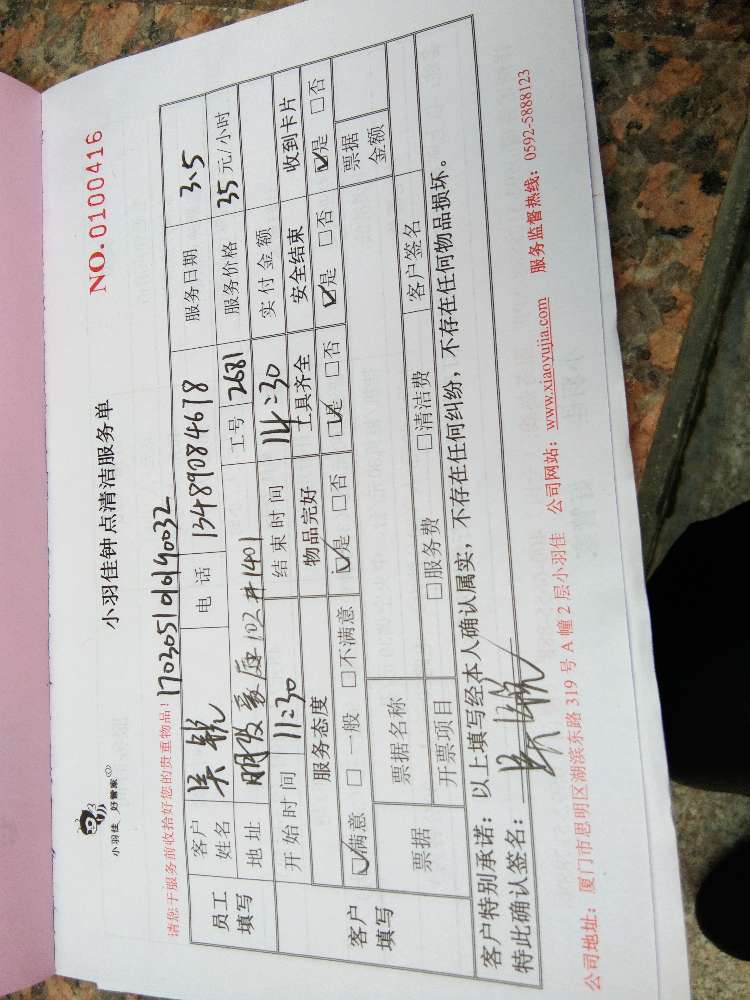 小羽佳 好管家
小羽佳钟点清洁服务单
NO.0100416
请您于服务前收拾好您的贵重物品！
员工填写 客户姓名 吴锐 电话 13489084678 服务日期 3.5
地址 明发豪庭102#1401 工号 2681 服务价格 35元/小时
开始时间 11:30 结束时间 14:30 实付金额
客户填写 服务态度 物品完好 工具齐全 安全结束 收到卡片
☑满意 □一般 □不满意 ☑是 □否 ☑是 □否 ☑是 □否 ☑是 □否
票据 票据名称 票据金额
开票项目 □服务费 □清洁费 客户签名
客户特别承诺：以上填写经本人确认属实，不存在任何纠纷，不存在任何物品损坏。
特此确认签名：吴锐
公司地址：厦门市思明区湖滨东路319号A幢2层小羽佳 公司网站：www.xiaoyujia.com 服务监督热线：0592-5888123